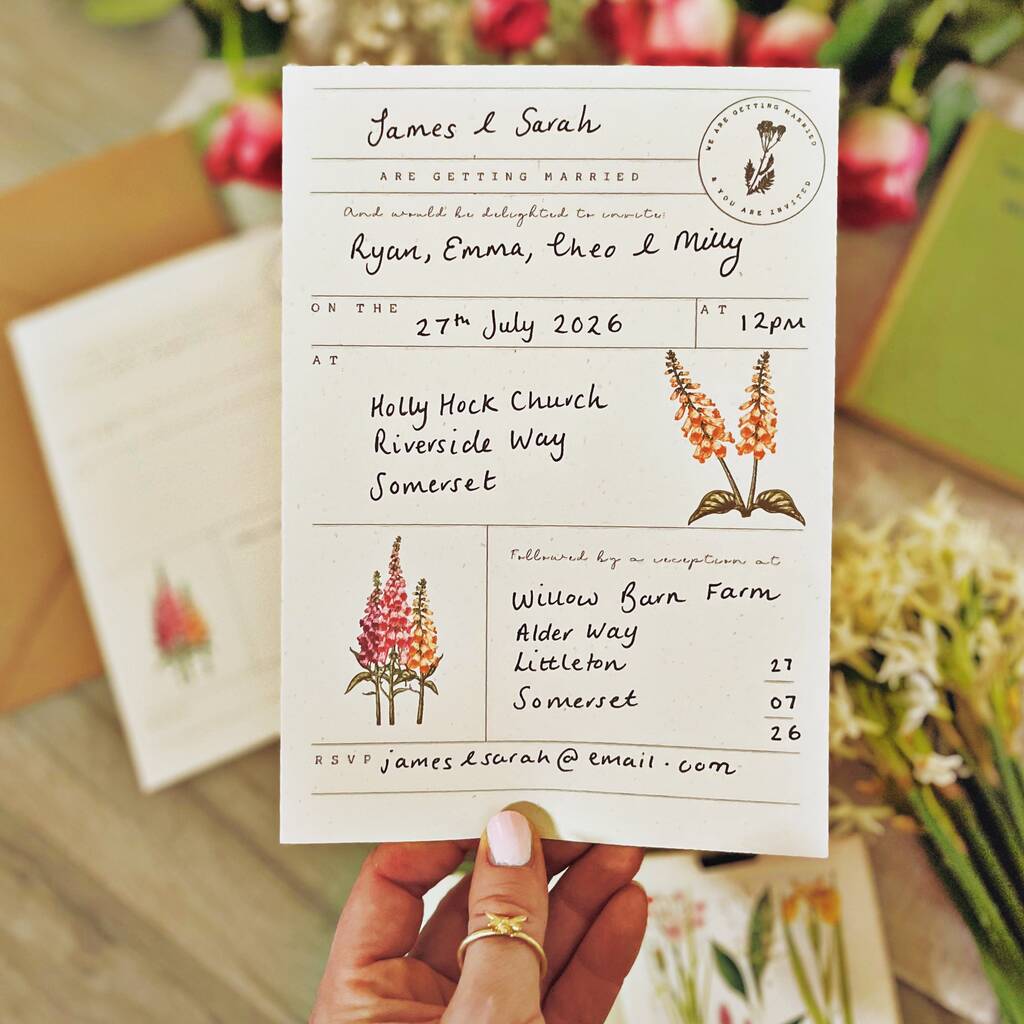 James & Sarah
WE ARE GETTING MARRIED
& YOU ARE INVITED
ARE GETTING MARRIED
And would be delighted to invite:
Ryan, Emma, Theo & Milly
ON THE 27th July 2026
AT 12pm
AT
Holly Hock Church
Riverside Way
Somerset
Followed by a reception at
Willow Barn Farm
Alder Way
Littleton
Somerset
27
07
26
RSVP james&sarah@email.com